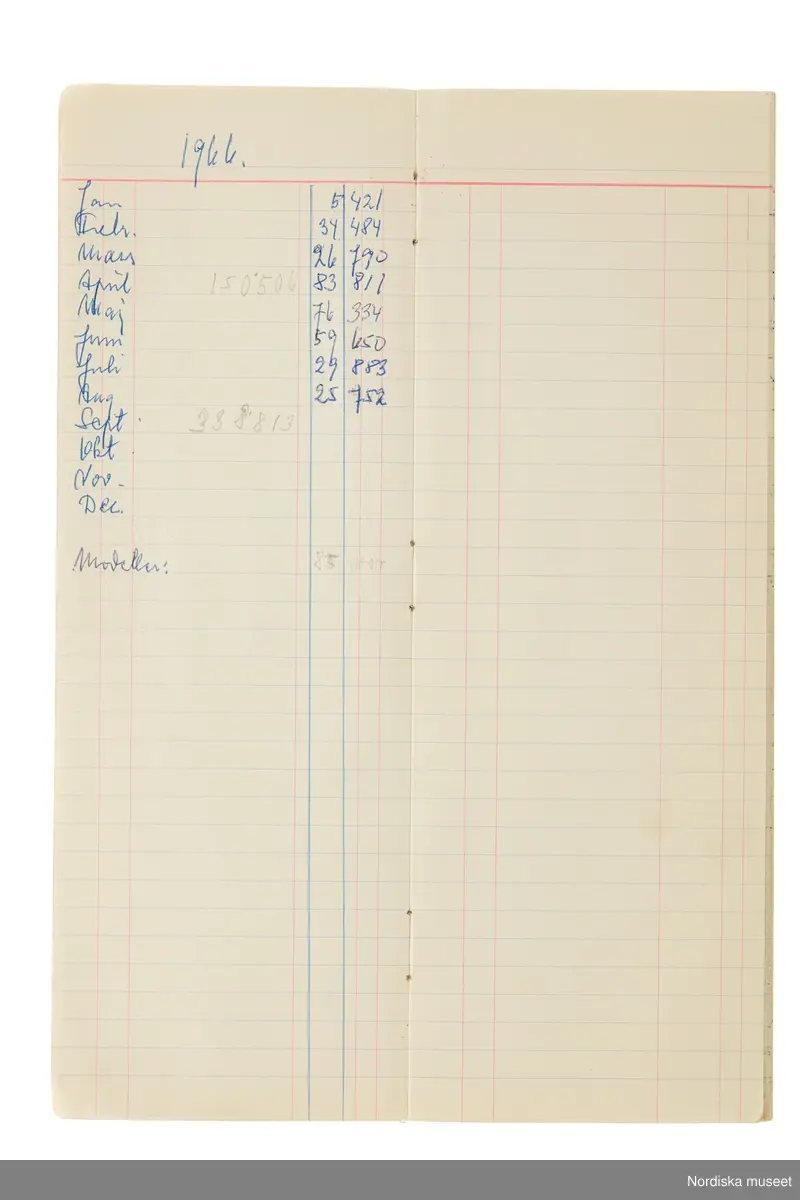 1966.
Jan 5 421
Febr. 34 484
Mars 26 790
April 150'506 83 811
Maj 76 334
Juni 59 650
Juli 29 883
Aug 25 752
Sept. 338'813
Okt
Nov-
Dec.
Modeller: 85
Nordiska museet